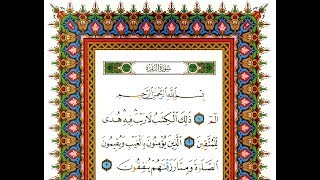 سورة البقرة
بسم الله الرحمن الرحيم
الٓمٓ ۝ ذَٰلِكَ ٱلْكِتَٰبُ لَا رَيْبَ فِيهِ هُدًى
لِّلْمُتَّقِينَ ۝ ٱلَّذِينَ يُؤْمِنُونَ بِٱلْغَيْبِ وَيُقِيمُونَ
ٱلصَّلَوٰةَ وَمِمَّا رَزَقْنَٰهُمْ يُنفِقُونَ